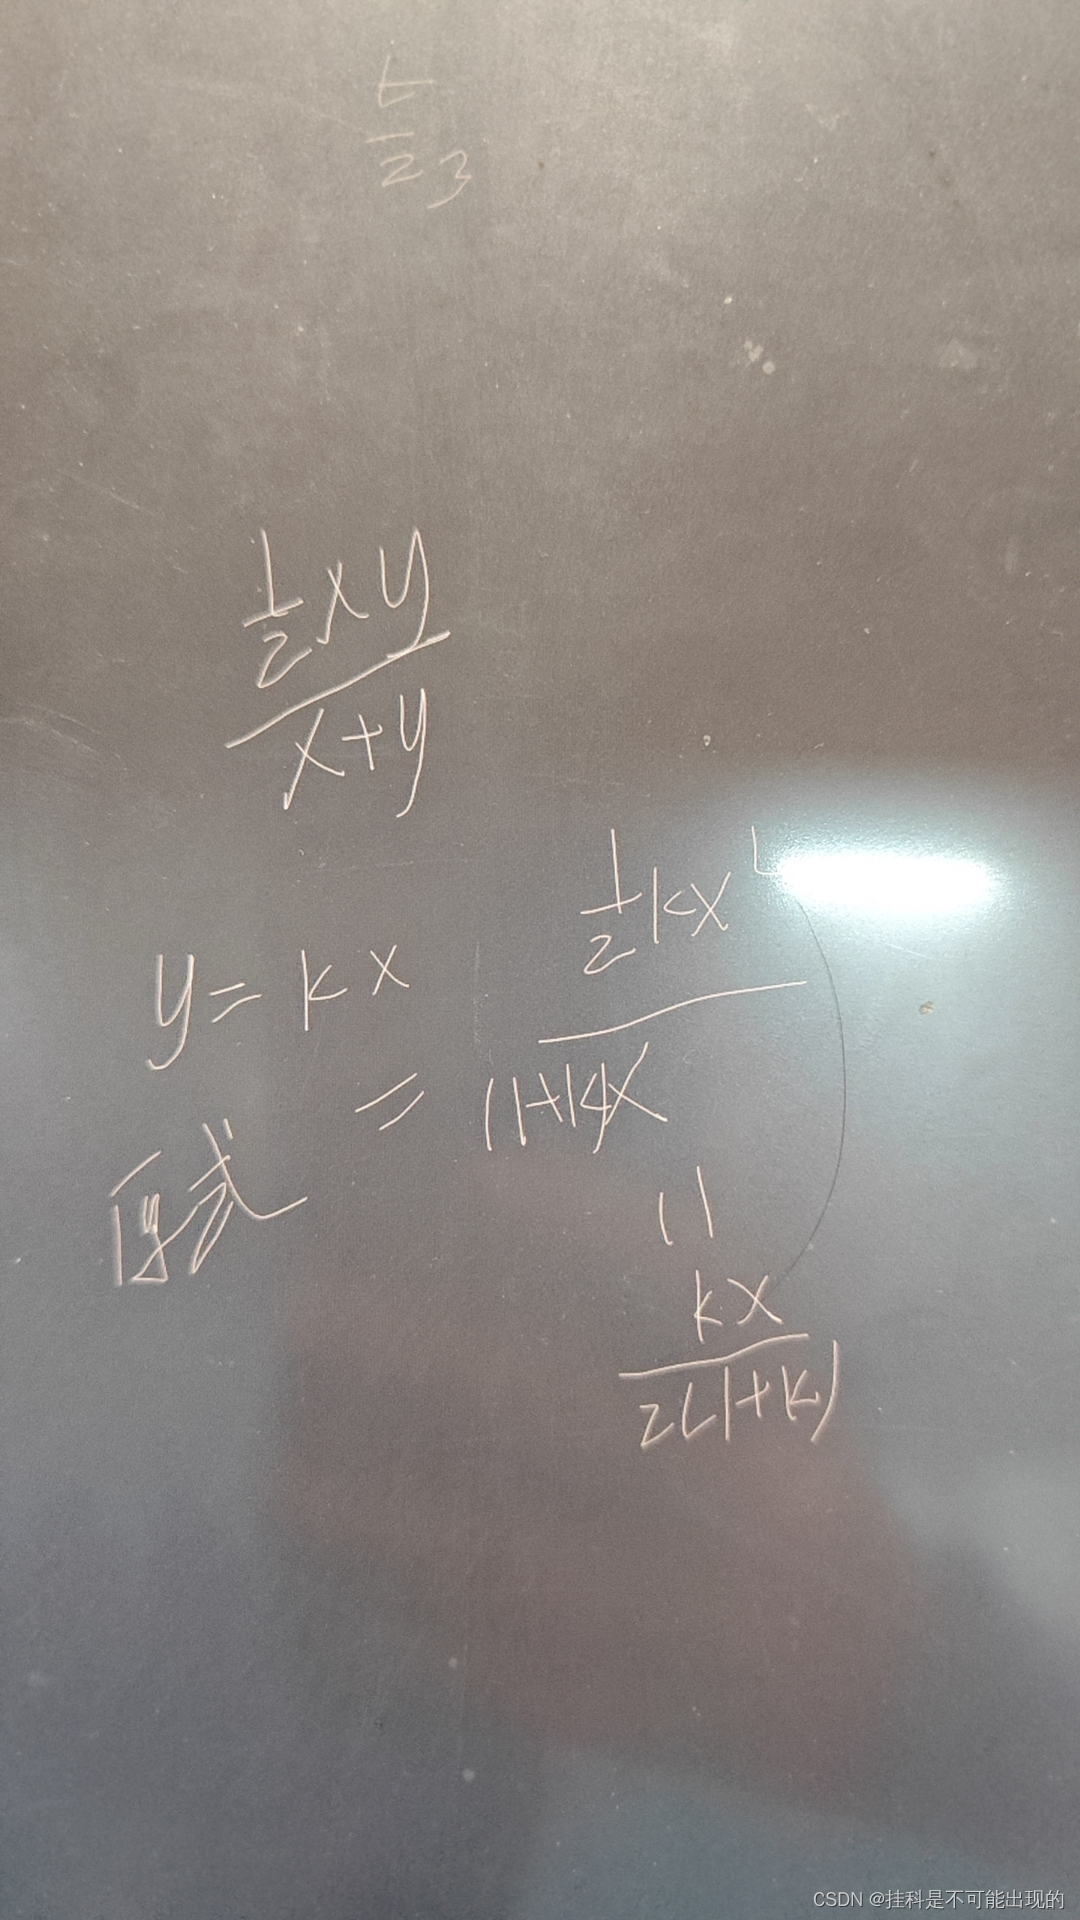 1/2 3
(1/2 xy)/(x+y)
y = kx
原式 = (1/2 kx²)/((1+k)x)
=
kx/(2(1+k))
CSDN @挂科是不可能出现的